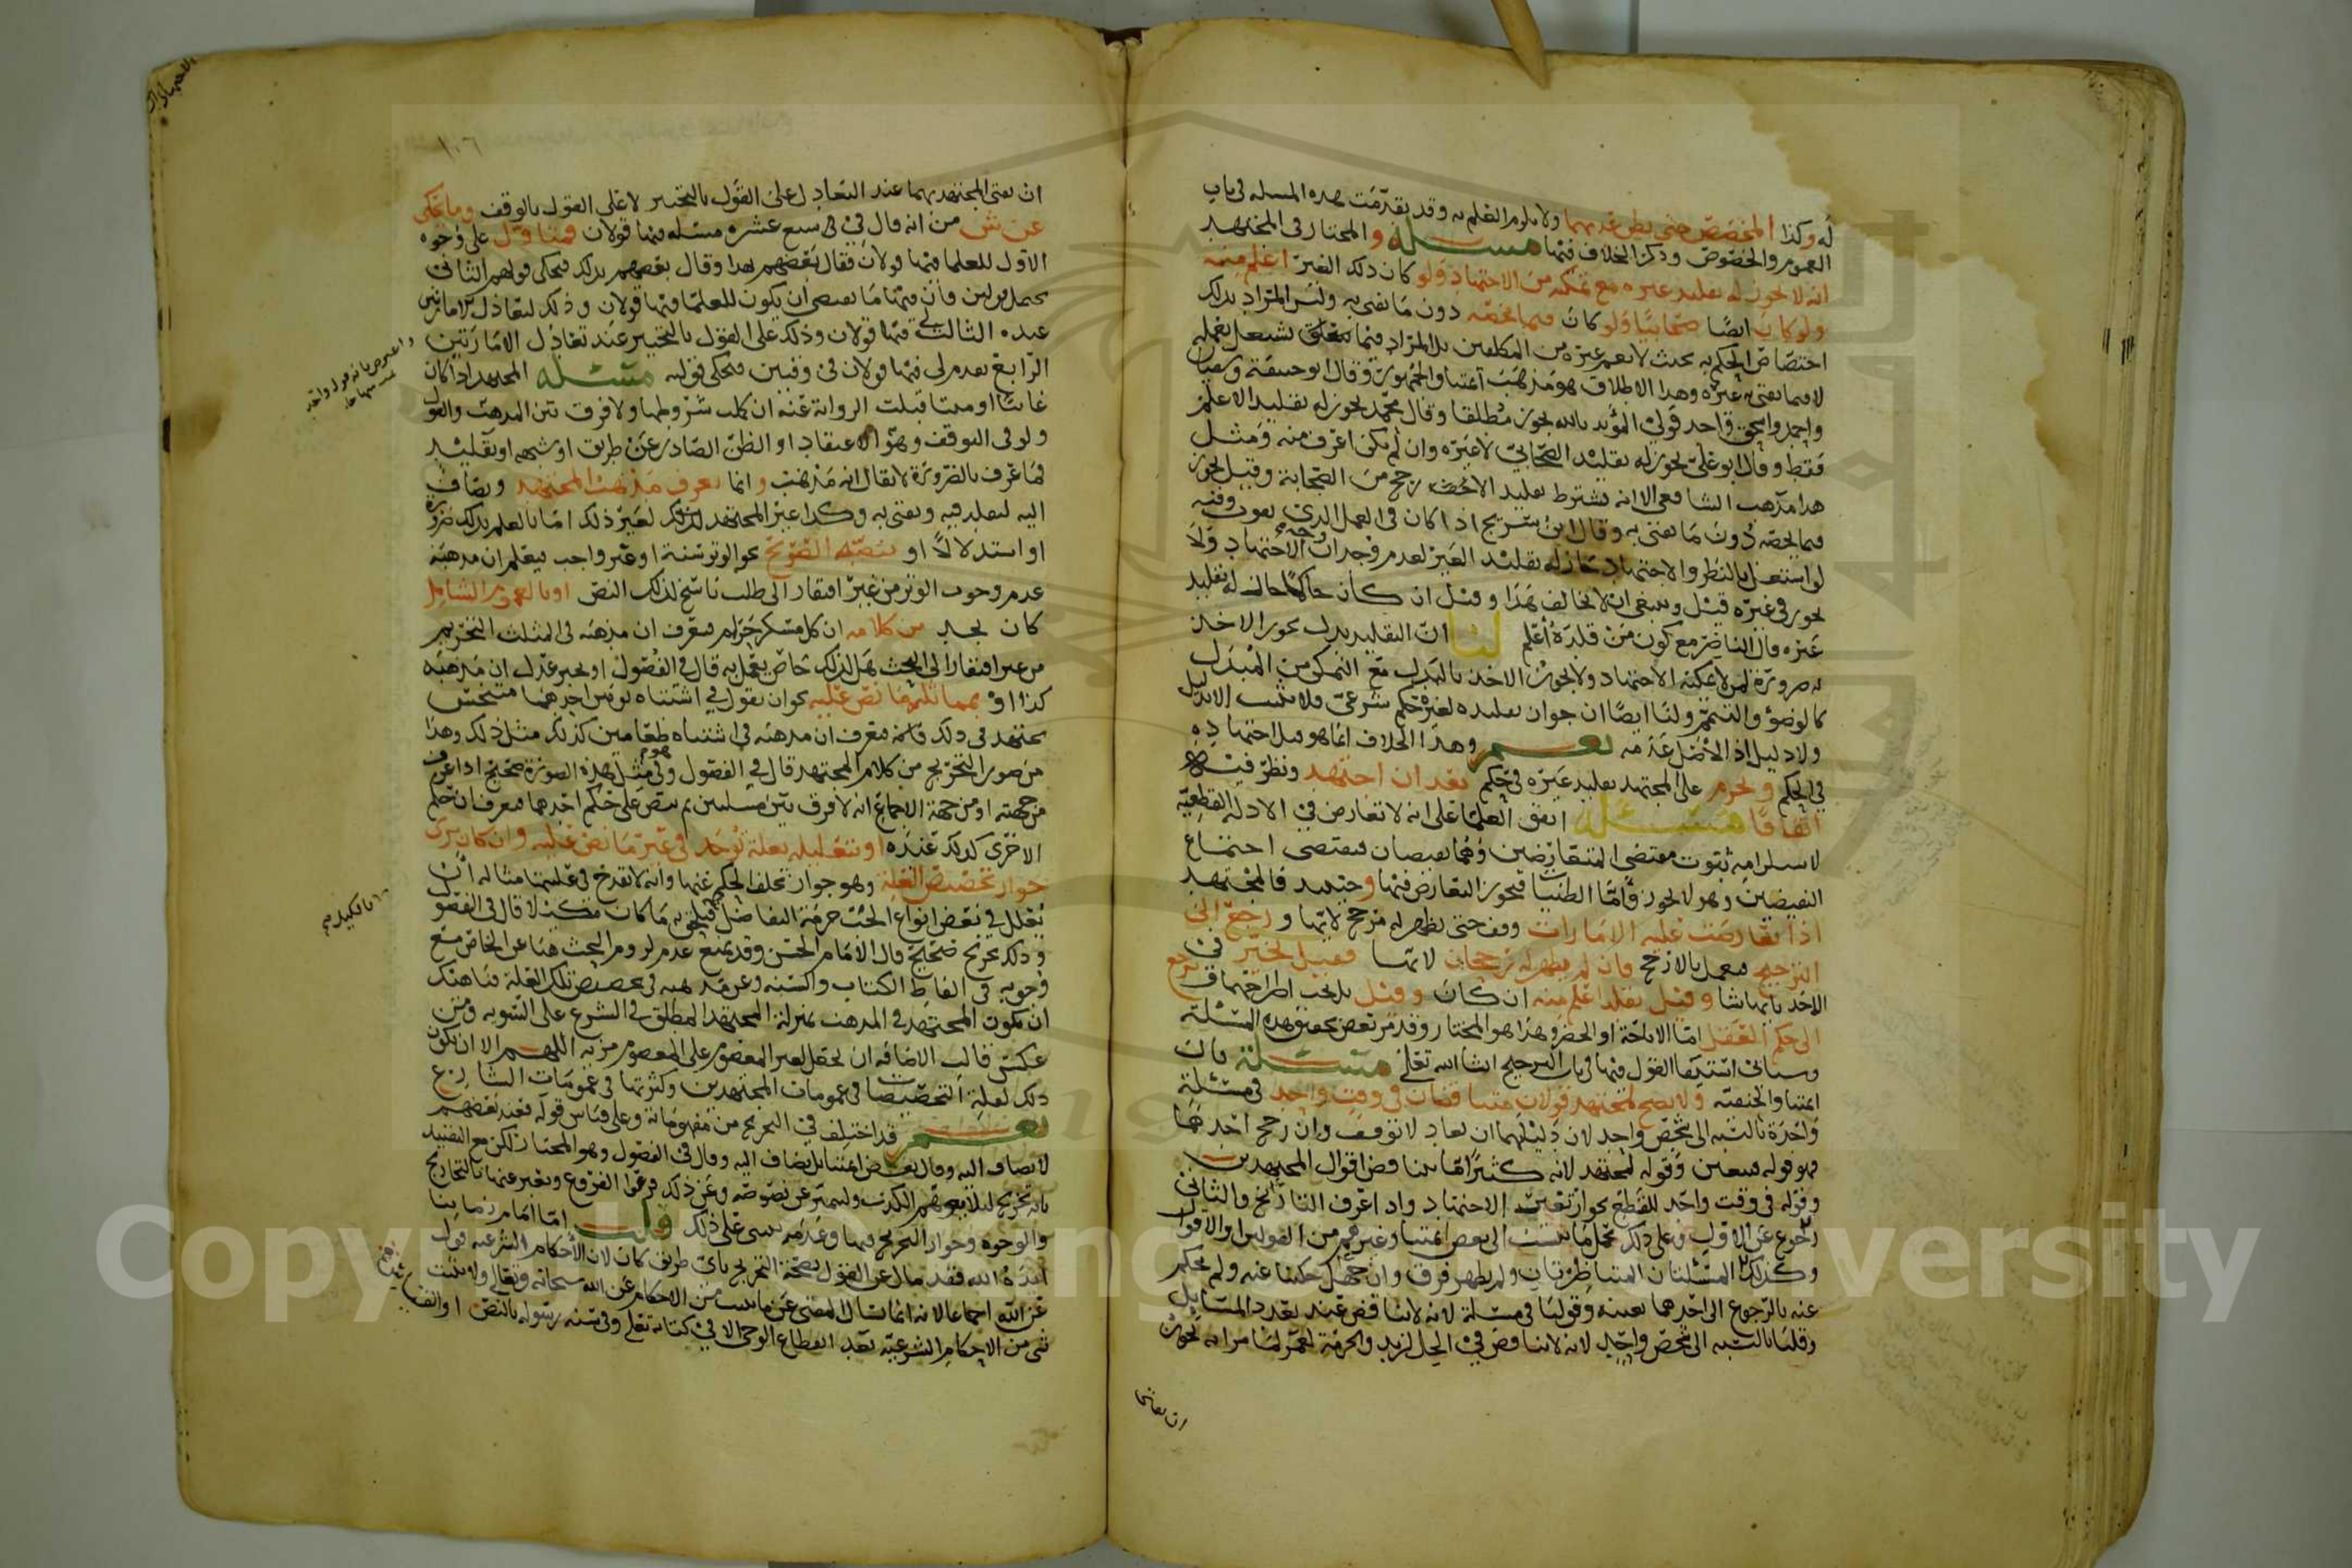 له وكذا المخصص حتى يظن عدمهما ولا يلزم العلم به وقد تقدمت هذه المسله في باب
العموم والخصوص وذكر الخلاف فيها مسئله والمختار في المجتهد
انه لا يجوز له تقليد غيره مع تمكنه من الاجتهاد ولو كان ذلك الغير اعلم منه
ولو كان ايضا صحابيا ولو كان فيما يخصه دون ما يفتي به وليس المراد بذلك
اختصاص الحكم به بحيث لا يعم غيره من المكلفين بل المراد فيما يتعلق بعمله
لا فيما يفتي به غيره وهذا الاطلاق هو مذهب ائمتنا والجمهور وقال ابو حنيفة وسفيان
واحمد واسحق واحد قولي المؤيد بالله يجوز مطلقا وقال محمد يجوز له تقليد الاعلم
فقط وقال ابو علي يجوز له تقليد الصحابي لا غيره وان لم يكن اعرف منه ومثل
هذا مذهب الشافعي الا انه يشترط تقليد الارجح من الصحابة وقيل يجوز
فيما يخصه دون ما يفتي به وقال ابن سريج اذا كان في العمل الذي يفوت وقته
لو اشتغل بالنظر والاجتهاد جاز له تقليد الغير لعدم وجدان الاجتهاد ولا
يجوز في غيره قيل وينبغي ان لا يخالف هذا وقيل ان كان حاكما جاز له تقليد
غيره قال الناصر مع كون من قلده اعلم لنا ان التقليد بدل يجوز الاخذ
به ضرورة لمن لا يمكنه الاجتهاد ولا يجوز الاخذ بالبدل مع التمكن من المبدل
كالوضو والتيمم ولنا ايضا ان جواز تقليده لغيره حكم شرعي فلا يثبت الا بدليل
ولا دليل اذ الاصل عدمه نعم وهذا الخلاف انما هو قبل اجتهاده
في الحكم ويحرم على المجتهد تقليد غيره في حكم بعد ان اجتهد ونظر فيه
اتفاقا مسئله اتفق العلما على انه لا تعارض في الادله القطعيه
لاستلزامه ثبوت مقتضى المتعارضين وهما نقيضان فيقتضي اجتماع
النقيضين وهو لا يجوز واما الظنيات فيجوز التعارض فيها وحينئذ فالمجتهد
اذا تعارضت عليه الامارات وقف حتى يظهر له مرجح لايها و رجع الى
الترجيح فيعمل بالارجح فان لم يظهر له رجحان لايها فقيل يخير في
الاخذ بايهما شا وقيل يقلد اعلم منه ان كان وقيل بل يجب اطراحهما و يرجع
الى حكم العقل اما الاباحة او الحضر وهذا هو المختار وقد مر بعض تحقيق هذه المسئلة
وسياتي استيفا القول فيها في باب الترجيح ان شا الله تعلى مسئلة قال
ائمتنا والحنفيه ولا يصح لمجتهد قولان متناقضان في وقت واحد في مسئلة
واحدة بالنسبه الى شخص واحد لان دليليهما ان تعادلا توقف وان رجح احدهما
فهو قوله فيتعين وقوله لمجتهد لانه كثيرا ما يتناقض اقوال المجتهدين
وقوله في وقت واحد للقطع بجواز تغير الاجتهاد واذا عرف التاريخ والثاني
رجوع عن الاول وعلى ذلك يحمل ما ينسب الى بعض ائمتنا وغيرهم من القولين او الاقوال
وكذلك المسئلتان المتناظرتان ولم يظهر فرق وان جهل حكينا عنه ولم يحكم
عنه بالرجوع الى احدهما بعينه وقولنا في مسئلة لانه لا تناقض عند تعدد المسايل
وقلنا بالنسبه الى شخص واحد لانه لا تناقض في الحل لزيد والحرمة لعمرو لما مر انه يجوز
ان يفتي المجتهد بهما عند التعادل على القول بالتخيير لا على القول بالوقف وما يحكى
عن ش من انه قال في سبع عشره مسئله فيها قولان فمتاول على وجوه
الاول للعلما فيها قولان فقال بعضهم بهذا وقال بعضهم بذلك فيحكى قولهم الثاني
يحتمل قولين وان فيها ما يقتضي ان يكون للعلما فيها قولان وذلك لتعادل الامارتين
عنده الثالث لي فيها قولان وذلك على القول بالتخيير عند تعادل الامارتين
الرابع تقدم لي فيها قولان في وقتين فيحكى قوليه مسئله المجتهد اذا كان
غائبا او ميتا قبلت الرواية عنه ان كملت شروطها ولا فرق بين المذهب والقول
ولو في التوقف وهو الاعتقاد او الظن الصادر عن طريق او شبهه او تقليد
فما عرف بالضرورة لا يقال انه مذهب وانما يعرف مذهب المجتهد ويضاف
اليه ليقلد فيه ويفتي به وكذا غير المجتهد لغير ذلك اما بالعلم بذلك ضرورة
او استدلالا او بنصه الصريح نحو الوتر سنة او غير واجب فيعلم ان مذهبه
عدم وجوب الوتر من غير افتقار الى طلب ناسخ لذلك النص او بالعموم الشامل
كان يجد من كلامه ان كل مسكر حرام فيعرف ان مذهبه في المثلث التحريم
من غير افتقار الى البحث هل لذلك خاص يعمل به قال في الفصول او بخبر عدل ان مذهبه
كذا او بمماثلة ما نص عليه نحو ان يقول في اشتباه ثوبين احدهما متنجس
يجتهد في ذلك فانه يعرف ان مذهبه في اشتباه طعامين كذلك مثل ذلك وهذا
من صور التخريج من كلام المجتهد قال في الفصول وفي مثل هذه الصورة صحيح اذا عرف
من جهته او من جهة الاجماع انه لا فرق بين مسئلتين ثم ينص على حكم احدهما فيعرف ان حكم
الاخرى كذلك عنده او بتعليله بعلة توجد في غير ما نص عليه وان كان يرى
جواز تخصيص العلة وهو جواز تخلف الحكم عنها وانه لا يقدح في عليتها مثاله ان
يعلل في بعض انواع الحب حرمة التفاضل فيلحق به ما كان مكيلا قال في الفصول
وذلك تخريج صحيح قال الامام الحسن وقد يمنع عدم لزوم البحث هنا عن الخاص مع
وجوبه في الفاظ الكتاب والسنه
ان يكون المجتهد في المذهب بمنزلة المجتهد المطلق في الشرع على السويه ومن
عكس قالب الاضافه ان يجعل لغير المعصوم على المعصوم مزيه اللهم الا ان يكون
ذلك لقلة التخصيصات في عمومات المجتهدين وكثرتها في عمومات الشارع
نعم قد اختلف في التخريج من مفهوماته وعلى قياس قوله فعند بعضهم
لا يضاف اليه وقال بعض ائمتنا بل يضاف اليه وقال في الفصول وهو المختار لكن مع التقييد
بانه تخريج ليلا يوهم الكذب وليتميز عن نصوصه وعن ذلك فرعوا الفروع ويعبر عنها بالتخاريج
والوجوه وجواز التخريج فيها وعدمه ينبني على ذلك قلت اما امام زماننا
ايده الله فقد مال عن القول بصحة التخريج باي طريق كان لان الاحكام الشرعيه قول
عن الله اجماعا لانه انما يسال المفتي عن ما يثبت من الاحكام عن الله سبحانه وتعالى ولا يثبت
شي من الاحكام الشرعيه بعد انقطاع الوحي الا في كتابه تعلى وفي سنه رسوله بالنص او القياس
١٠٦
Copyright © King Saud University